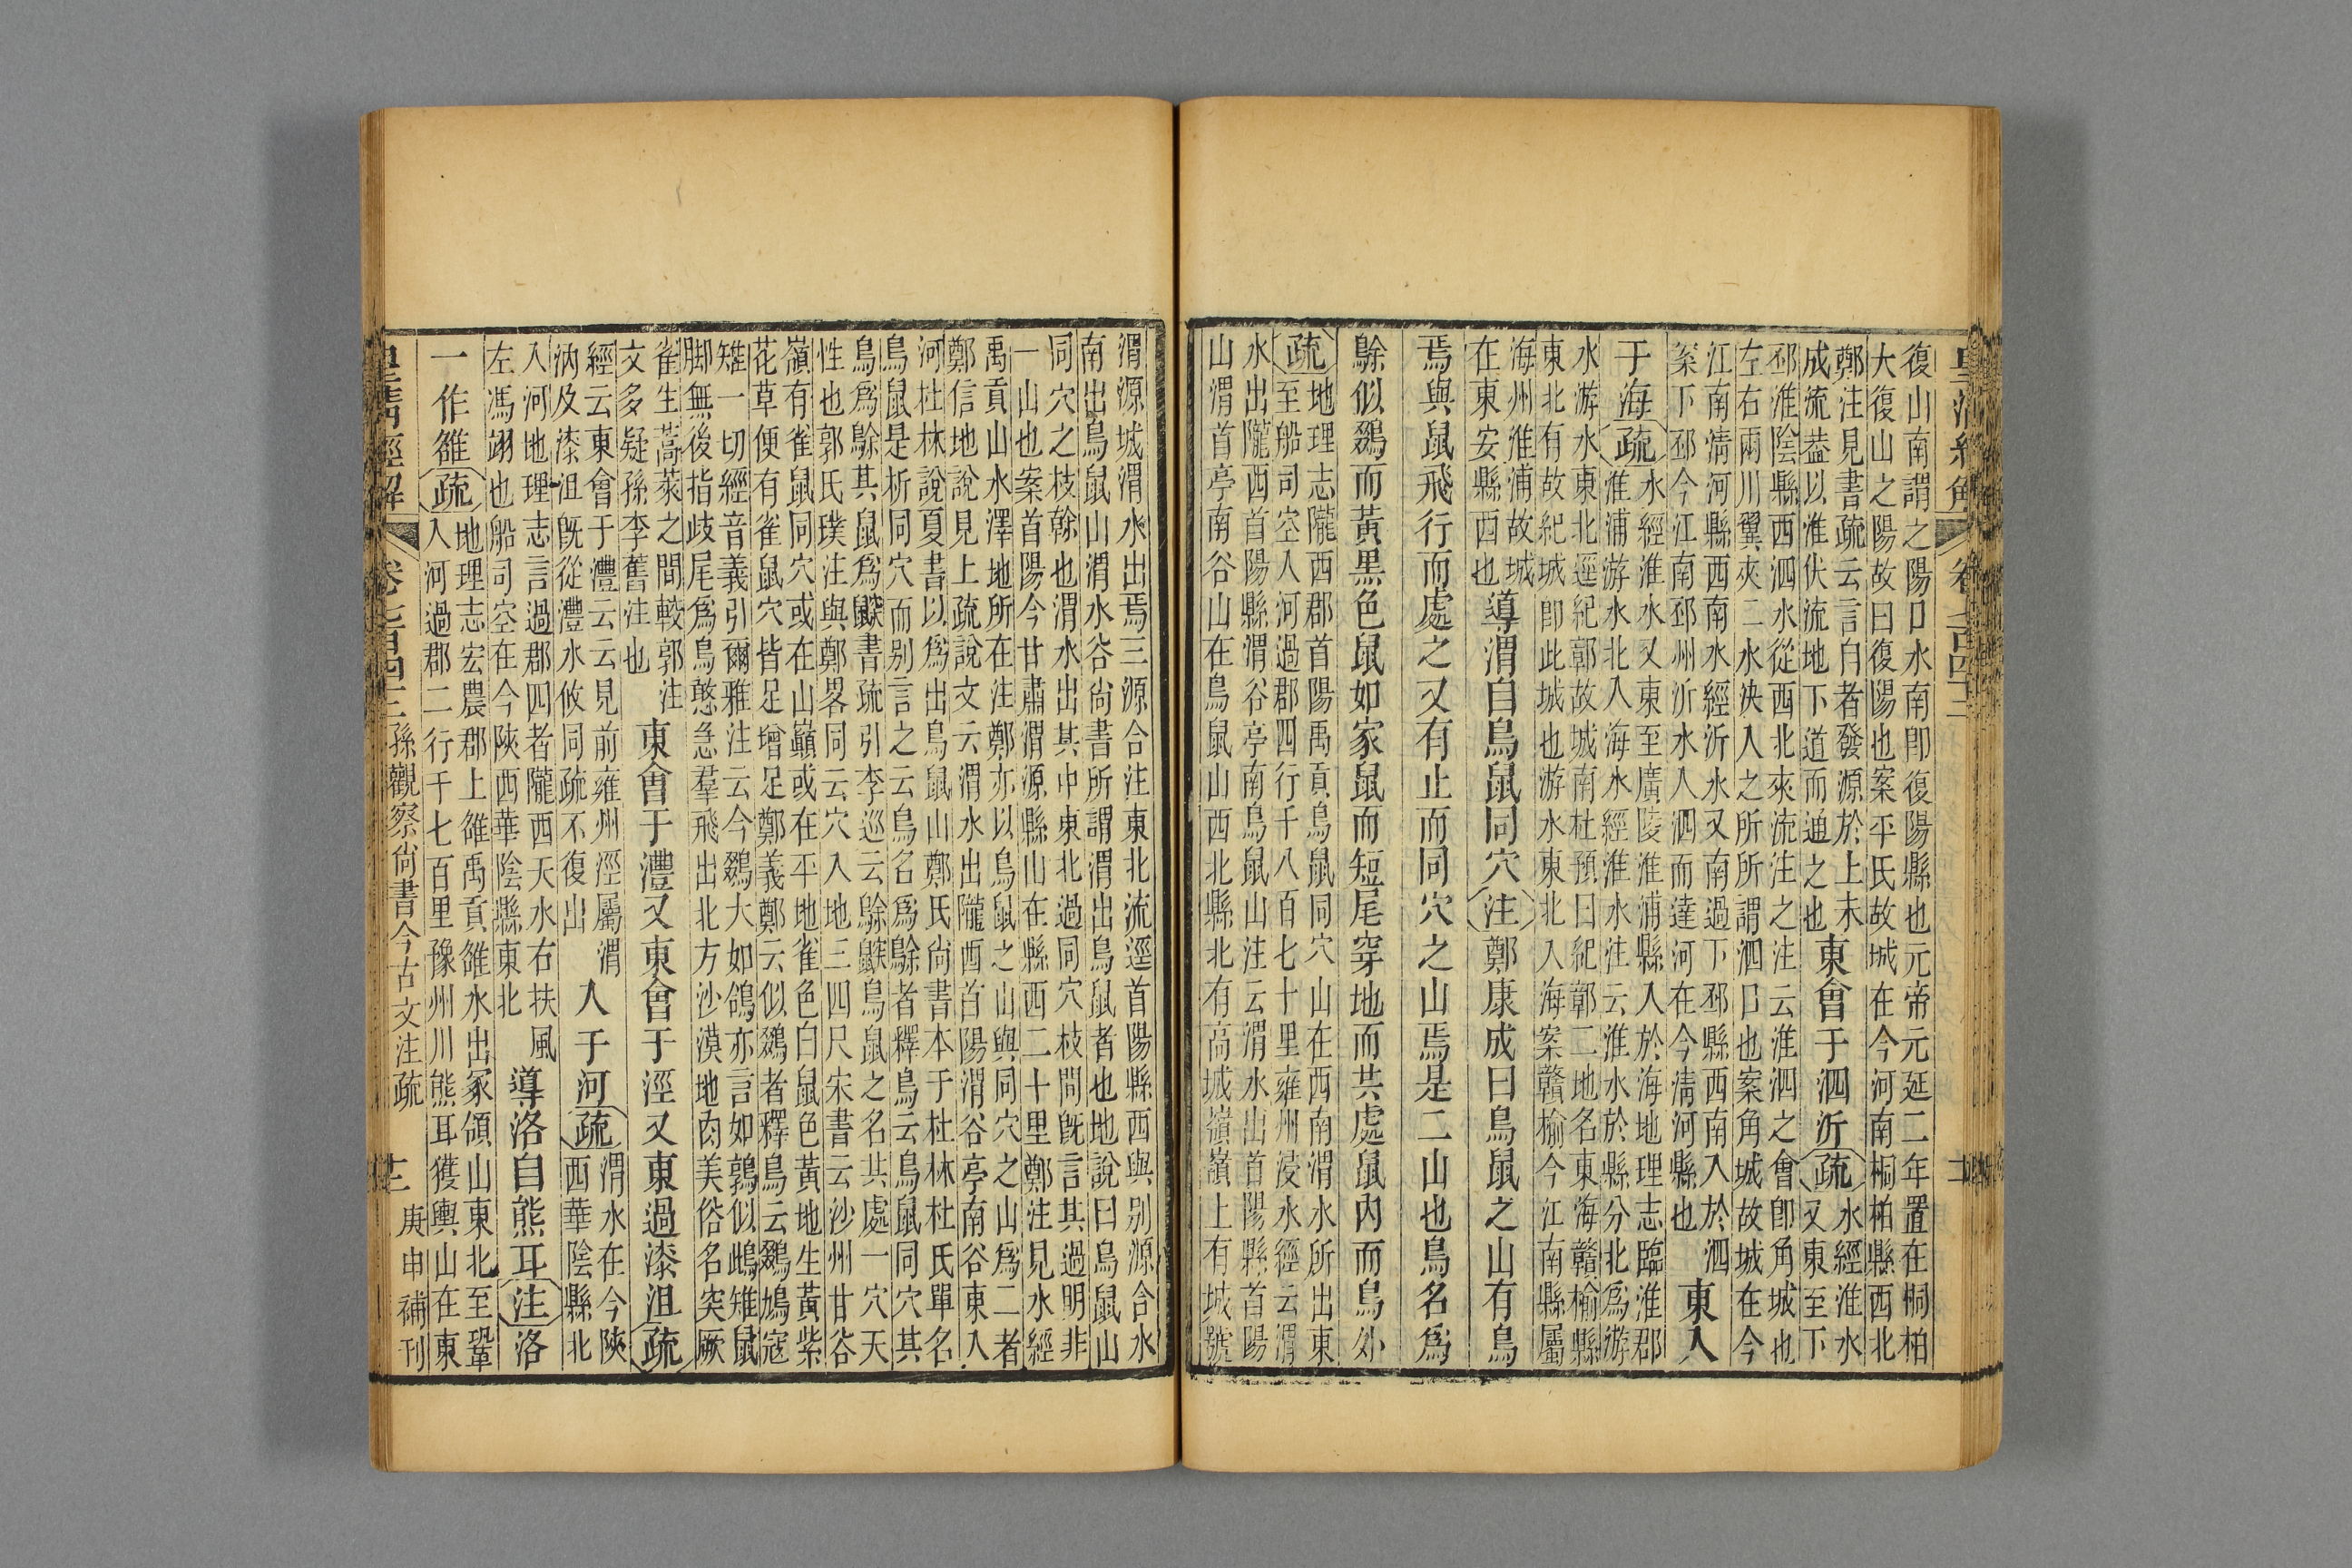 皇清經解 卷七百四十三
復山南謂之陽口水南卽復陽縣也元帝元延二年置在桐柏
大復山之陽故曰復陽也案平氏故城在今河南桐柏縣西北
鄭注見書疏云言自者發源於上未
成流葢以淮伏流地下道而通之也
東會于泗沂疏
水經淮水
又東至下
邳淮陰縣西泗水從西北來流注之注云淮泗之會卽角城也
左右兩川翼夾二水泱入之所所謂泗口也案角城故城在今
江南清河縣西南水經沂水又南過下邳縣西南入於泗
案下邳今江南邳州沂水入泗而達河在今清河縣也
東入
于海疏
水經淮水又東至廣陵淮浦縣入於海地理志臨淮郡
淮浦游水北入海水經淮水注云淮水於縣分北爲游
水游水東北逕紀鄣故城南杜預曰紀鄣二地名東海贛榆縣
東北有故紀城卽此城也游水東北入海案贛榆今江南縣屬
海州淮浦故城
在東安縣西也
導渭自鳥鼠同穴注鄭康成曰鳥鼠之山有鳥
焉與鼠飛行而處之又有止而同穴之山焉是二山也鳥名爲
鵌似鵽而黃黑色鼠如家鼠而短尾穿地而共處鼠內而鳥外
疏
地理志隴西郡首陽禹貢鳥鼠同穴山在西南渭水所出東
至船司空入河過郡四行千八百七十里雍州浸水經云渭
水出隴西首陽縣渭谷亭南鳥鼠山注云渭水出首陽縣首陽
山渭首亭南谷山在鳥鼠山西北縣北有高城嶺嶺上有城號
渭源城渭水出焉三源合注東北流逕首陽縣西與别源合水
南出鳥鼠山渭水谷尚書所謂渭出鳥鼠者也地說曰鳥鼠山
同穴之枝榦也渭水出其中東北過同穴枝間旣言其過明非
一山也案首陽今甘肅渭源縣山在縣西二十里鄭注見水經
禹貢山水澤地所在注鄭亦以鳥鼠之山與同穴之山爲二者
鄭信地說見上疏說文云渭水出隴西首陽渭谷亭南谷東入
河杜林說夏書以爲出鳥鼠山鄭氏尚書本于杜林杜氏單名
鳥鼠是析同穴而别言之云鳥名爲鵌者釋鳥云鳥鼠同穴其
鳥爲鵌其鼠爲鼵書疏引李巡云鵌鼵鳥鼠之名共處一穴天
性也郭氏璞注與鄭畧同云穴入地三四尺宋書云沙州甘谷
嶺有雀鼠同穴或在山巔或在平地雀色白鼠色黃地生黃紫
花草便有雀鼠穴皆足增足鄭義鄭云似鵽者釋鳥云鵽鳩寇
雉一切經音義引爾雅注云今鵽大如鴿亦言如鶉似雌雉鼠
脚無後指歧尾爲鳥憨急羣飛出北方沙漠地肉美俗名突厥
雀生蒿萊之間較郭注
文多疑孫李舊注也
東會于灃又東會于涇又東過漆沮疏
經云東會于灃云云見前雍州涇屬渭
汭及漆沮旣從灃水攸同疏不復出
入于河疏
渭水在今陝
西華陰縣北
入河地理志言過郡四者隴西天水右扶風
左馮翊也船司空在今陝西華陰縣東北
導洛自熊耳注洛
一作雒疏
地理志宏農郡上雒禹貢雒水出冢領山東北至鞏
入河過郡二行千七百里豫州川熊耳獲輿山在東
皇清經解 卷七百四十三 孫觀察尚書今古文注疏 十二 庚申補刊